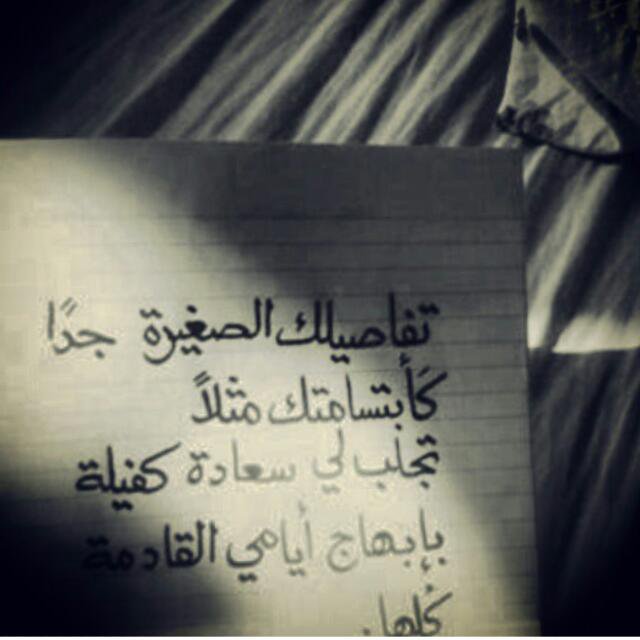 تفاصيلك الصغيرة جدًا
كَأبتسامتك مثلاً
تجلب لي سعادة كفيلة
بإبهاج أيامي القادمة
كُلها.